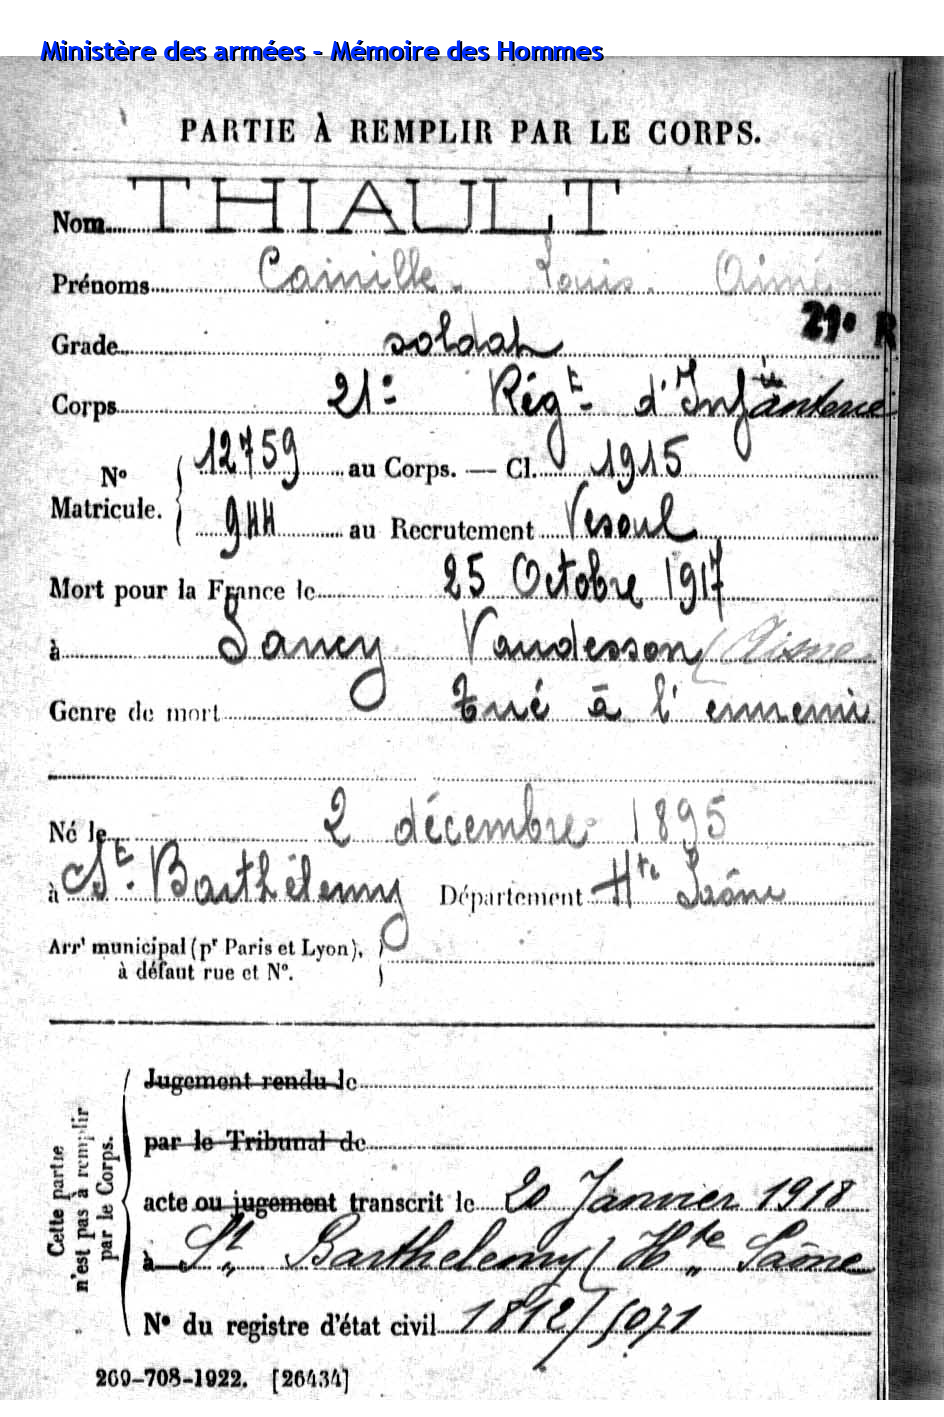 Ministère des armées - Mémoire des Hommes
PARTIE À REMPLIR PAR LE CORPS.
Nom THIAULT
Prénoms Camille Louis Aimé
21e R
Grade soldat
Corps 21e Régt d'Infanterie
No Matricule. 12759 au Corps. — Cl. 1915
944 au Recrutement Vesoul
Mort pour la France le 25 Octobre 1917
à Sancy Vaudesson (Aisne
Genre de mort Tué à l'ennemi
Né le 2 décembre 1895
à St. Barthélemy Département Hte Saône
Arrt municipal (pr Paris et Lyon),
à défaut rue et No.
Cette partie
n'est pas à remplir
par le Corps.
Jugement rendu le
par le Tribunal de
acte ou jugement transcrit le 20 Janvier 1918
à St Barthelemy (Hte Saône
No du registre d'état civil 1812/5071
269-708-1922. [26434]